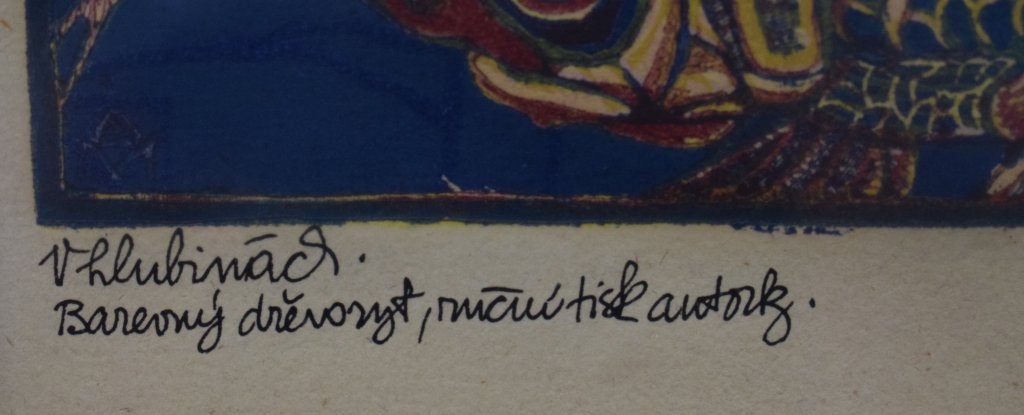 V hlubinách.
Barevný dřevoryt, ruční tisk autorky.